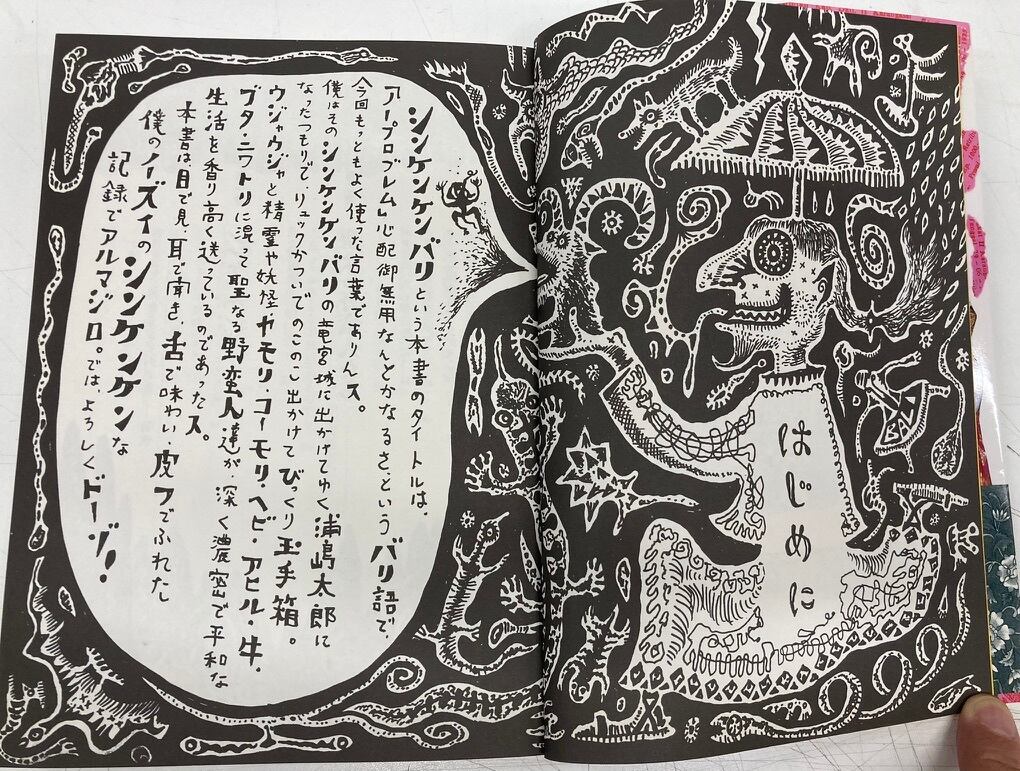 はじめに
シンケンケンバリという本書のタイトルは、
「ノープロブレム」心配御無用なんとかなるさというバリ語で
今回もっともよく使った言葉でありんス。
僕はそのシンケンケンバリの竜宮城に出かけてゆく浦嶋太郎に
なったつもりで、リュックかついでのこのこ出かけてびっくり玉手箱。
ウジャウジャと精霊や妖怪、ヤモリ・コーモリ・ヘビ・アヒル・牛、
ブタ・ニワトリに混って聖なる野蛮人達が、深く濃密で平和な
生活を香り高く送っているのであったス。
本書は目で見、耳で聞き、舌で味わい、皮フでふれた
僕のノーズイのシンケンケンな
記録でアルマジロ。では、よろしくドーゾ!